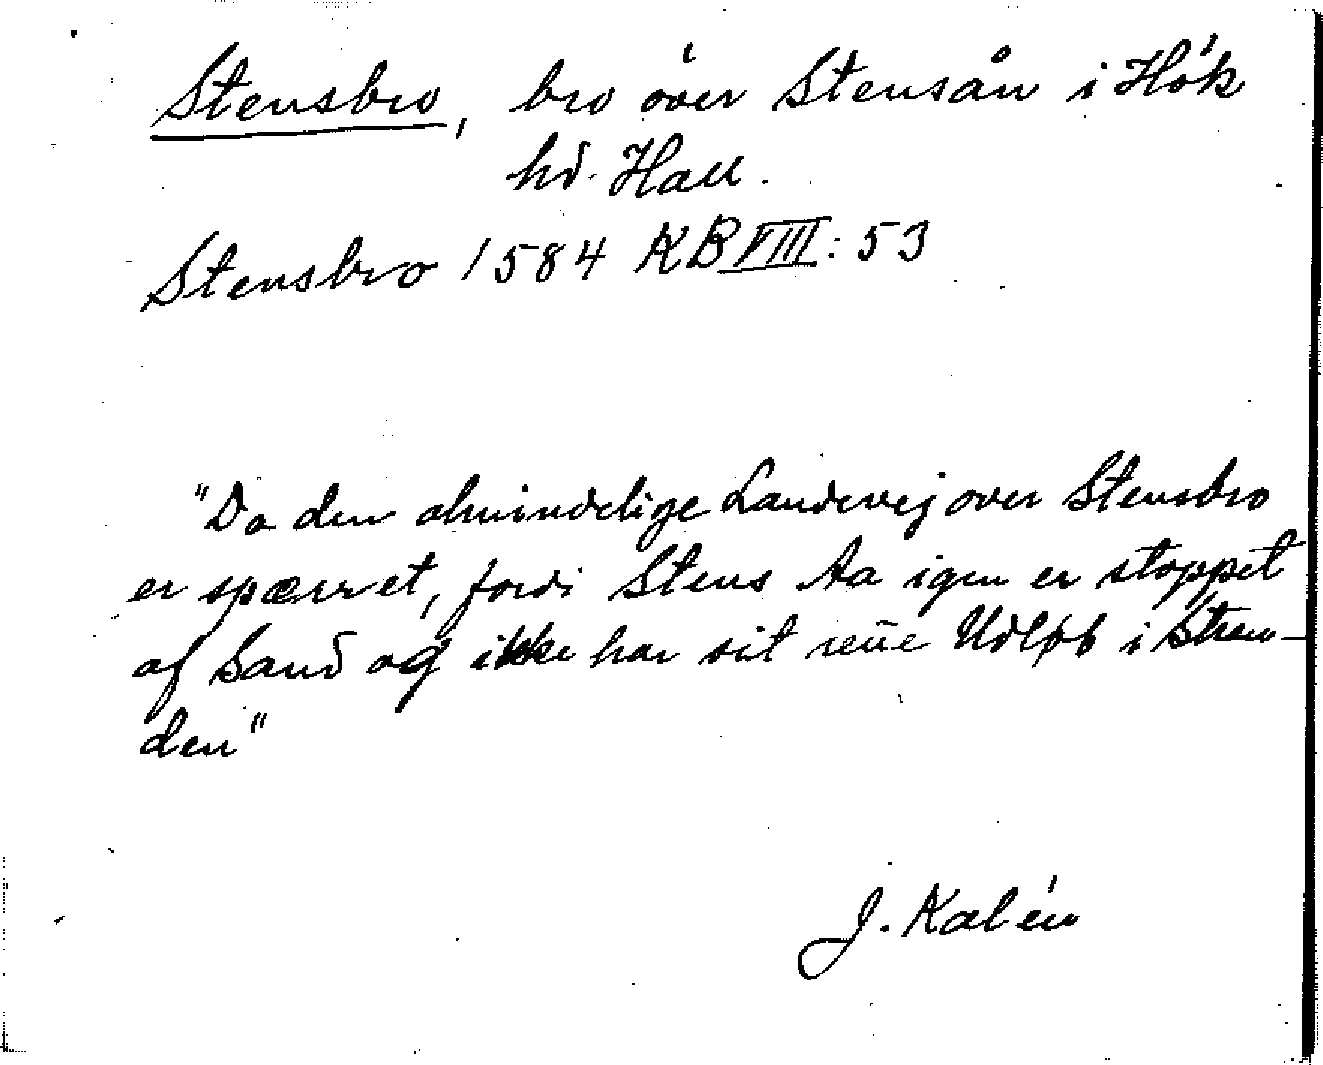 Stensbro, bro över Stensån i Hök
hd. Hall.
Stensbro 1584 KB VIII: 53
"Da den almindelige Landevej over Stensbro
er spærret, fordi Stens Aa igen er stoppet
af Sand og ikke har sit rette Udløb i Stran-
den"
J. Kalén